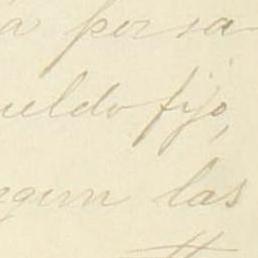 á persa
ueldo fijo,
ngun las